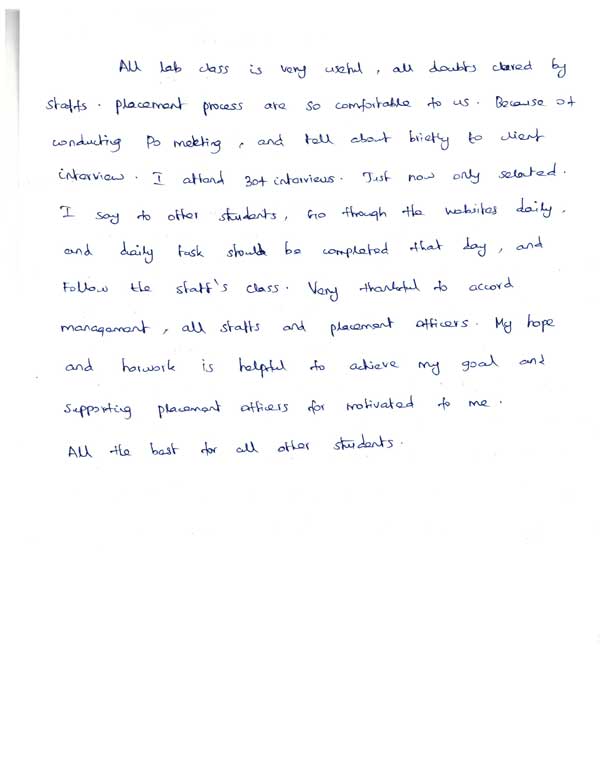 All Lab class is very useful, all doubts clared by
staffs. placement process are so comfortable to us. Because of
conducting Po meeting, and tell about briefly to client
interview. I attend 30+ interviews. Just now only selected.
I say to other students, Go through the websites daily.
and daily task should be completed that day, and
Follow the staff's class. Very thankful to accord
management, all staffs and placement officers. My hope
and horwork is helpful to achieve my goal and
supporting placement officers for motivated to me.
All the best for all other students.